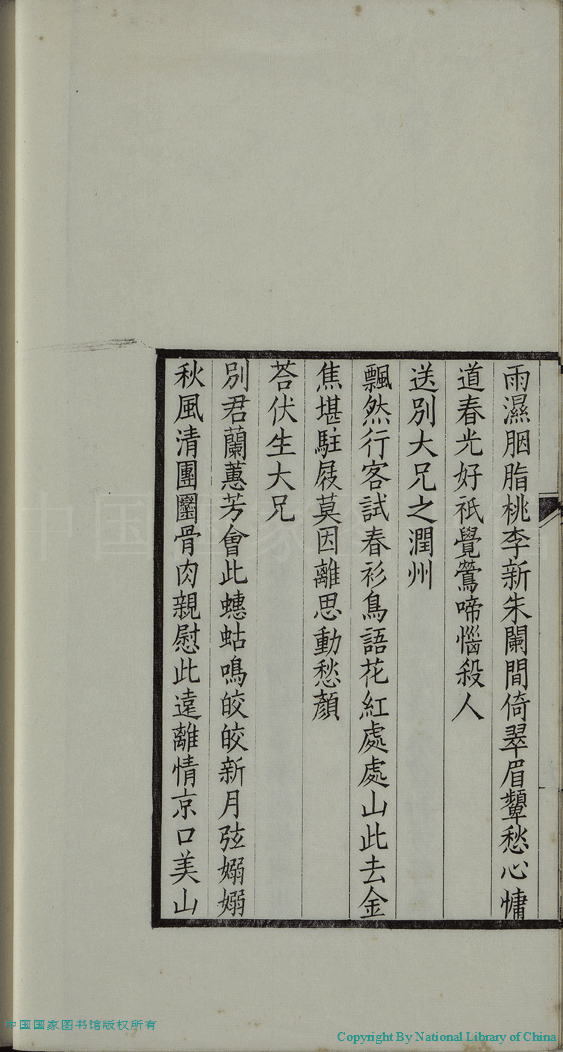 雨濕胭脂桃李新朱闌閒倚翠眉顰愁心慵
道春光好祇覺鶯啼惱殺人
送別大兄之潤州
飄然行客試春衫鳥語花紅處處山此去金
焦堪駐屐莫因離思動愁顏
荅伏生大兄
別君蘭蕙芳會此蟪蛄鳴皎皎新月弦嫋嫋
秋風清團圞骨肉親慰此遠離情京口美山
中国国家图书馆版权所有
Copyright By National Library of China